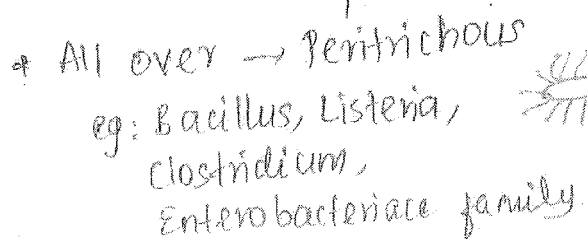 * All over → Peritrichous
eg: Bacillus, Listeria,
Clostridium,
Enterobacteriace family